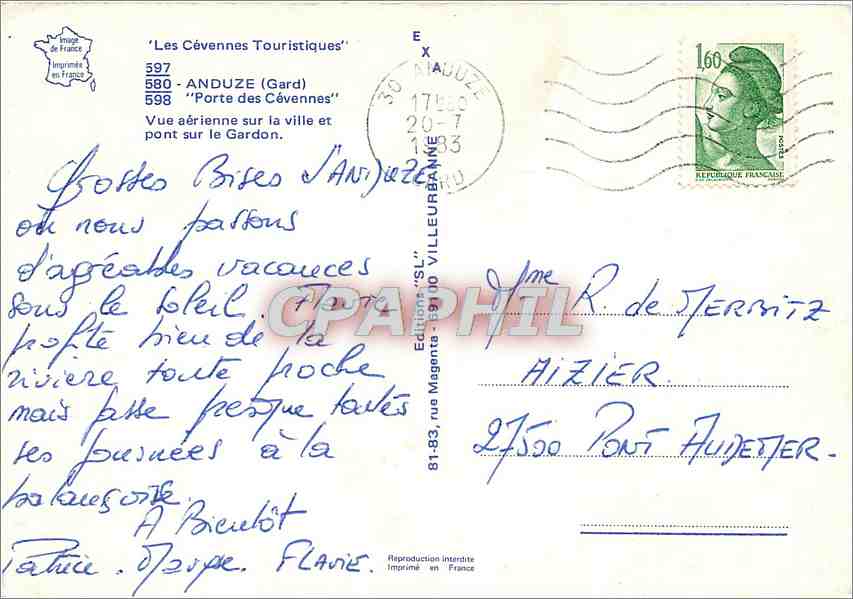 Image
de France
Imprimée
en France
"Les Cévennes Touristiques"
597
580 - ANDUZE (Gard)
598 "Porte des Cévennes"
Vue aérienne sur la ville et
pont sur le Gardon.
Grosses Bises d'ANDUZE
où nous passons
d'agréables vacances
sous le soleil. Flavie
profite bien de la
rivière toute proche
mais passe presque toutes
ses journées à la
balançoire.
A Bientôt
Patrice. Maryse. FLAVIE.
EXA
Editions "SL"
81-83, rue Magenta - 69100 VILLEURBANNE
30 ANDUZE
20-7
1983
GARD
1,60
POSTES
REPUBLIQUE FRANÇAISE
CPAPHIL
Mme R. de MERBITZ
AIZIER.
27500 PONT AUDEMER.
Reproduction interdite
Imprimé en France